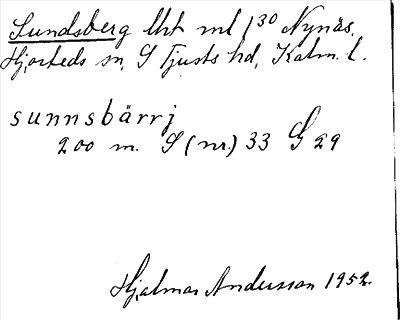 Sundsberg lht ml 1³⁰ Nynäs,
Hjorteds sn, S Tjusts hd, Kalm. l.
sunnsbärrj
200 m. S (nr.) 33 G 29
Hjalmar Andersson 1952.